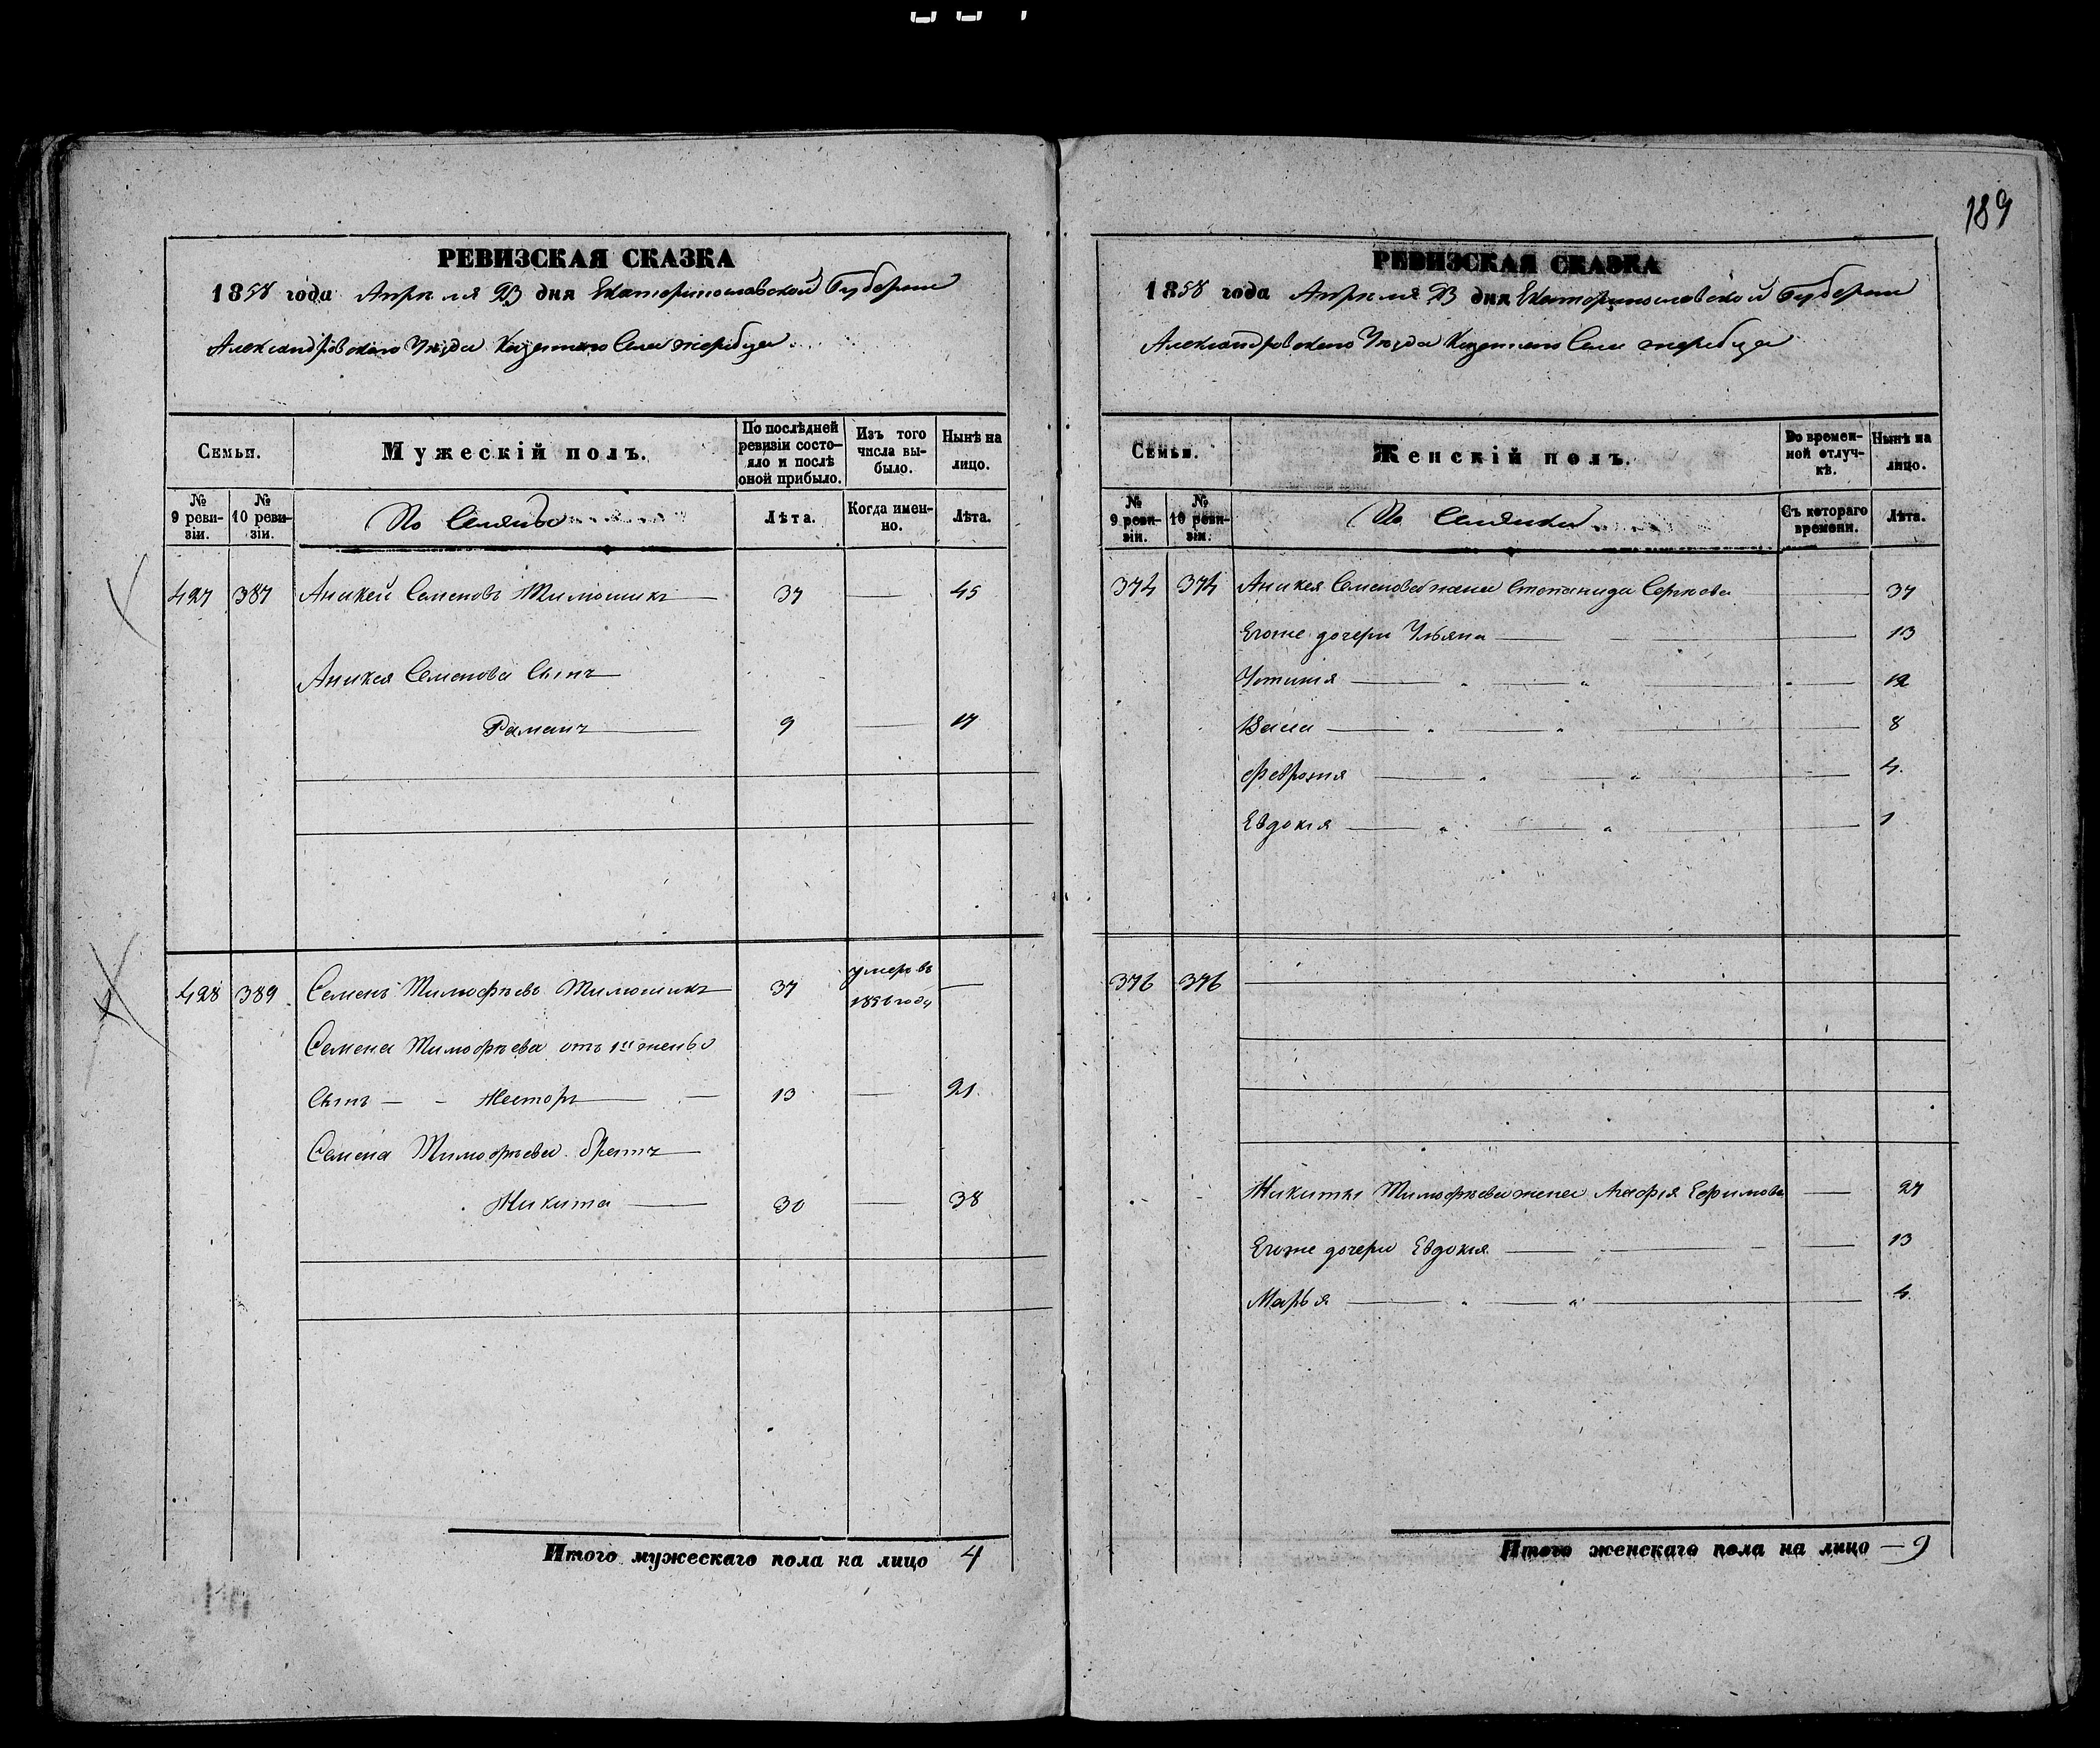 189
РЕВИЗСКАЯ СКАЗКА
1858 года Апреля 23 дня Екатеринославской Губернии
Александровского Уезда Казенного Села жеребца
Семьи.
Мужескій полъ.
По послѣдней ревизіи состо-
яло и послѣ
оной прибыло.
Изъ того
числа вы-
было.
Нынѣ на
лицо.
№
9 реви-
зіи.
№
10 реви-
зіи.
Лѣта.
Когда имен-
но.
Лѣта.
427 387 Аникей Семеновъ Тимошикъ — 37 — 45
Аникея Семенова Сынъ —
Раманъ — 9 — 17
428 389 Семенъ Тимофѣевъ Тимошикъ — 37 умеръ въ 1856 году —
Семена Тимофѣева отъ 1й жены
Сынъ — - Несторъ — — 13 — 21
Семена Тимофѣева братъ —
Никита — 30 — 38
Итого мужескаго пола на лицо 4
РЕВИЗСКАЯ СКАЗКА
1858 года Апреля 23 дня Екатеринославской Губернии
Александровского Уезда Казенного Села жеребца
Семьи.
Женскій полъ.
Во времен-
ной отлуч-
кѣ.
Нынѣ на
лицо.
№
9 реви-
зіи.
№
10 реви-
зіи.
Съ котораго
времени.
Лѣта.
374 374 Аникея Семенова жена Степанида Сергѣева — 37
Егоже дочери Ульяна — 13
Устинія — 12
Васса — 8
Февронія — 4
Евдокія — 1
376 376 —
Никиты Тимофѣева жена Агафія Ефимова — 27
Егоже дочери Евдокія — 13
Марья — 4
Итого женскаго пола на лицо — 9